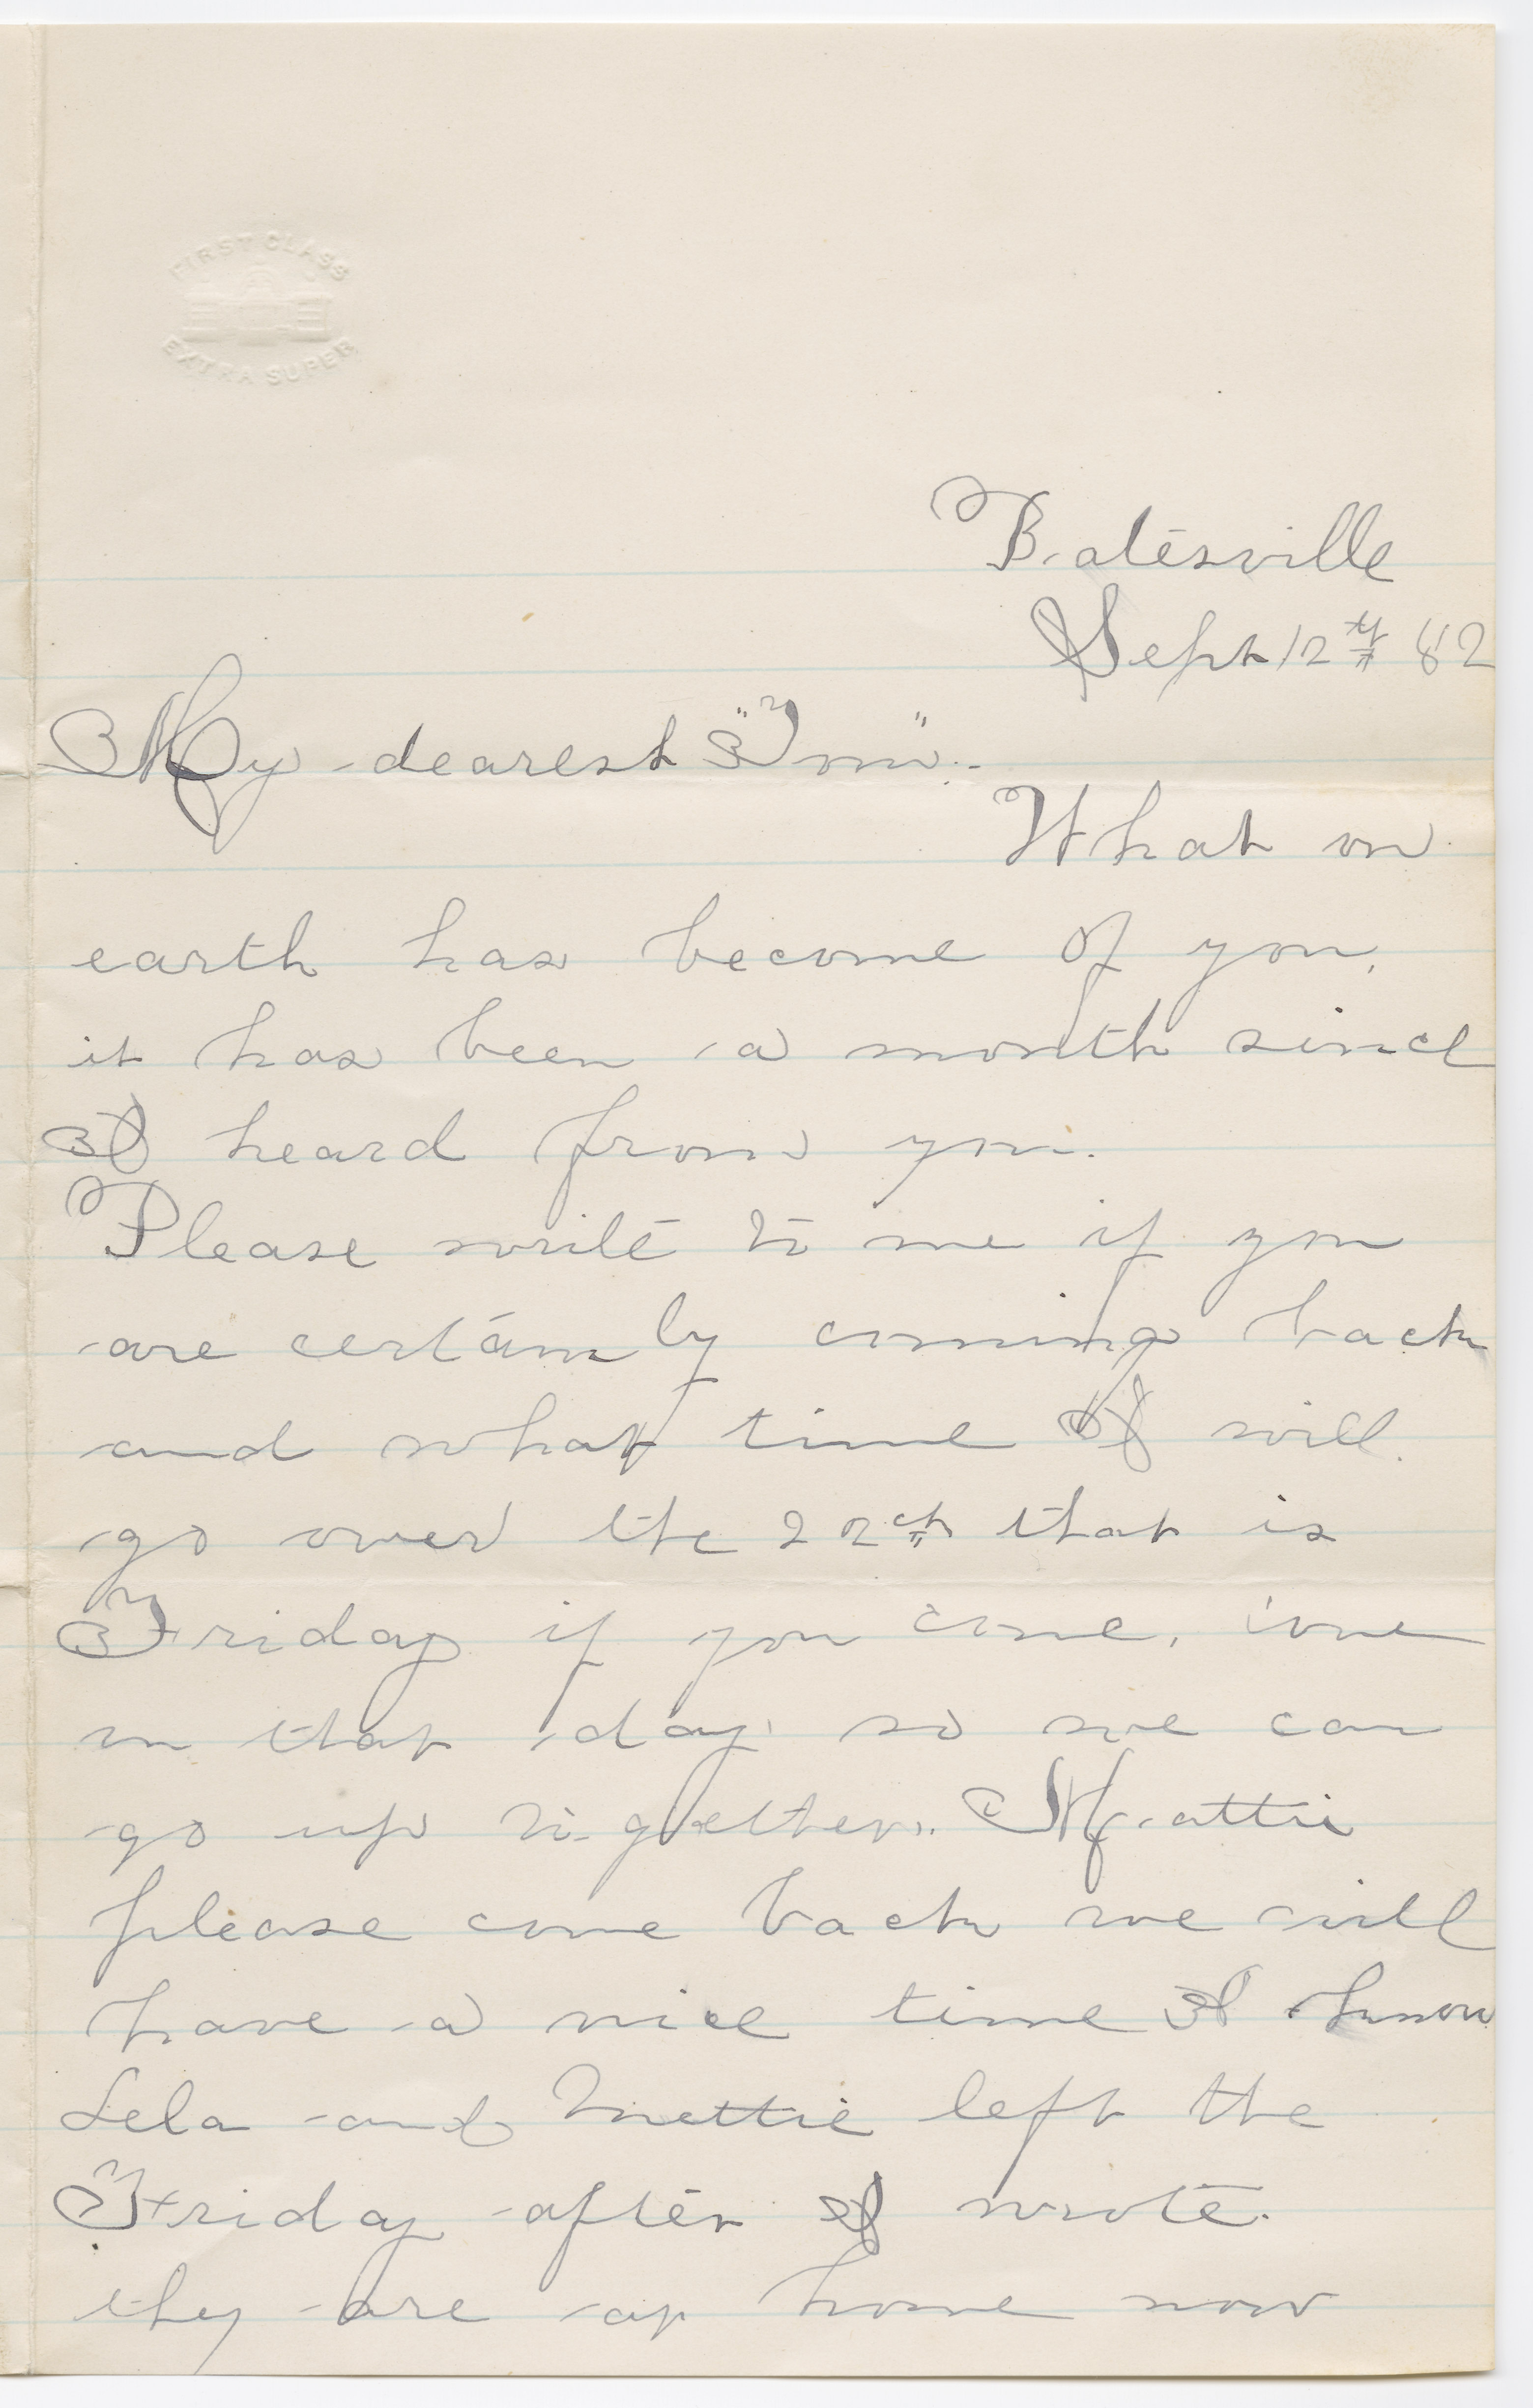 FIRST CLASS
EXTRA SUPER
Batesville
Sept 12th 82
My dearest "Tom".-
What on
earth has become of you,
it has been a month since
I heard from you.
Please write to me if you
are certainly coming back
and what time I will
go over the 22ond that is
Friday if you come, come
on that day so we can
go up to-gether. Mattie
please come back we will
have a nice time I know
Lela and Nettie left the
Friday after I wrote.
they are at home now